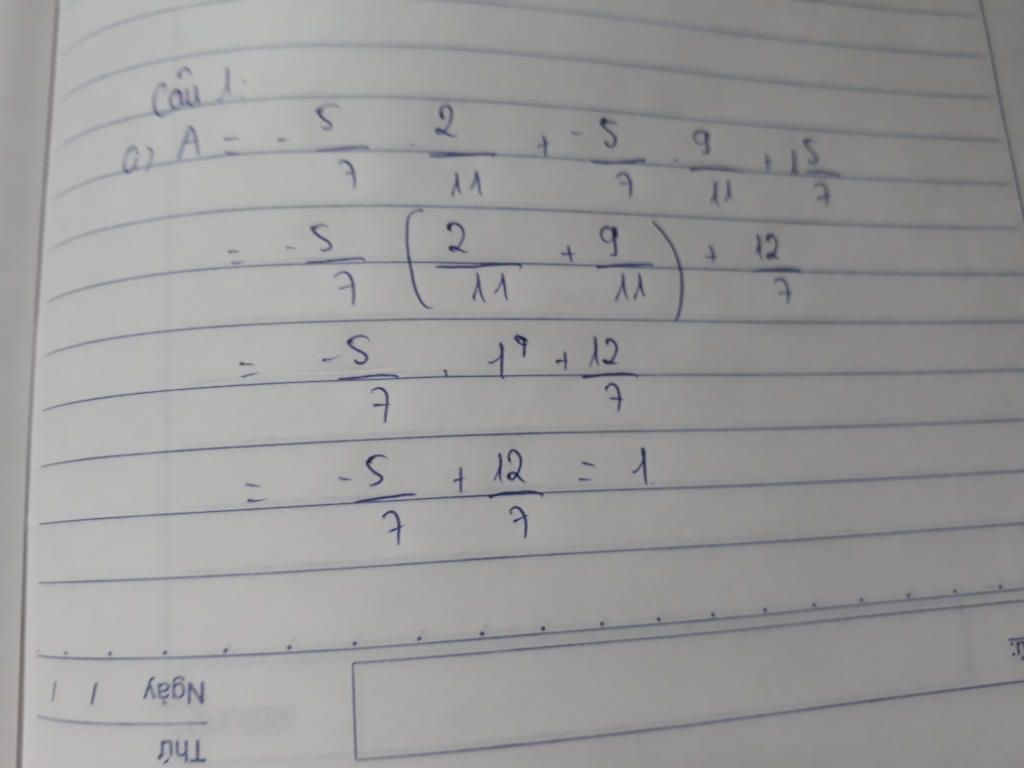 Câu 1:
a) A = -5/7 . 2/11 + -5/7 . 9/11 + 1 5/7
= -5/7 (2/11 + 9/11) + 12/7
= -5/7 . 1 + 12/7
= -5/7 + 12/7 = 1
Ngày / /
Thứ